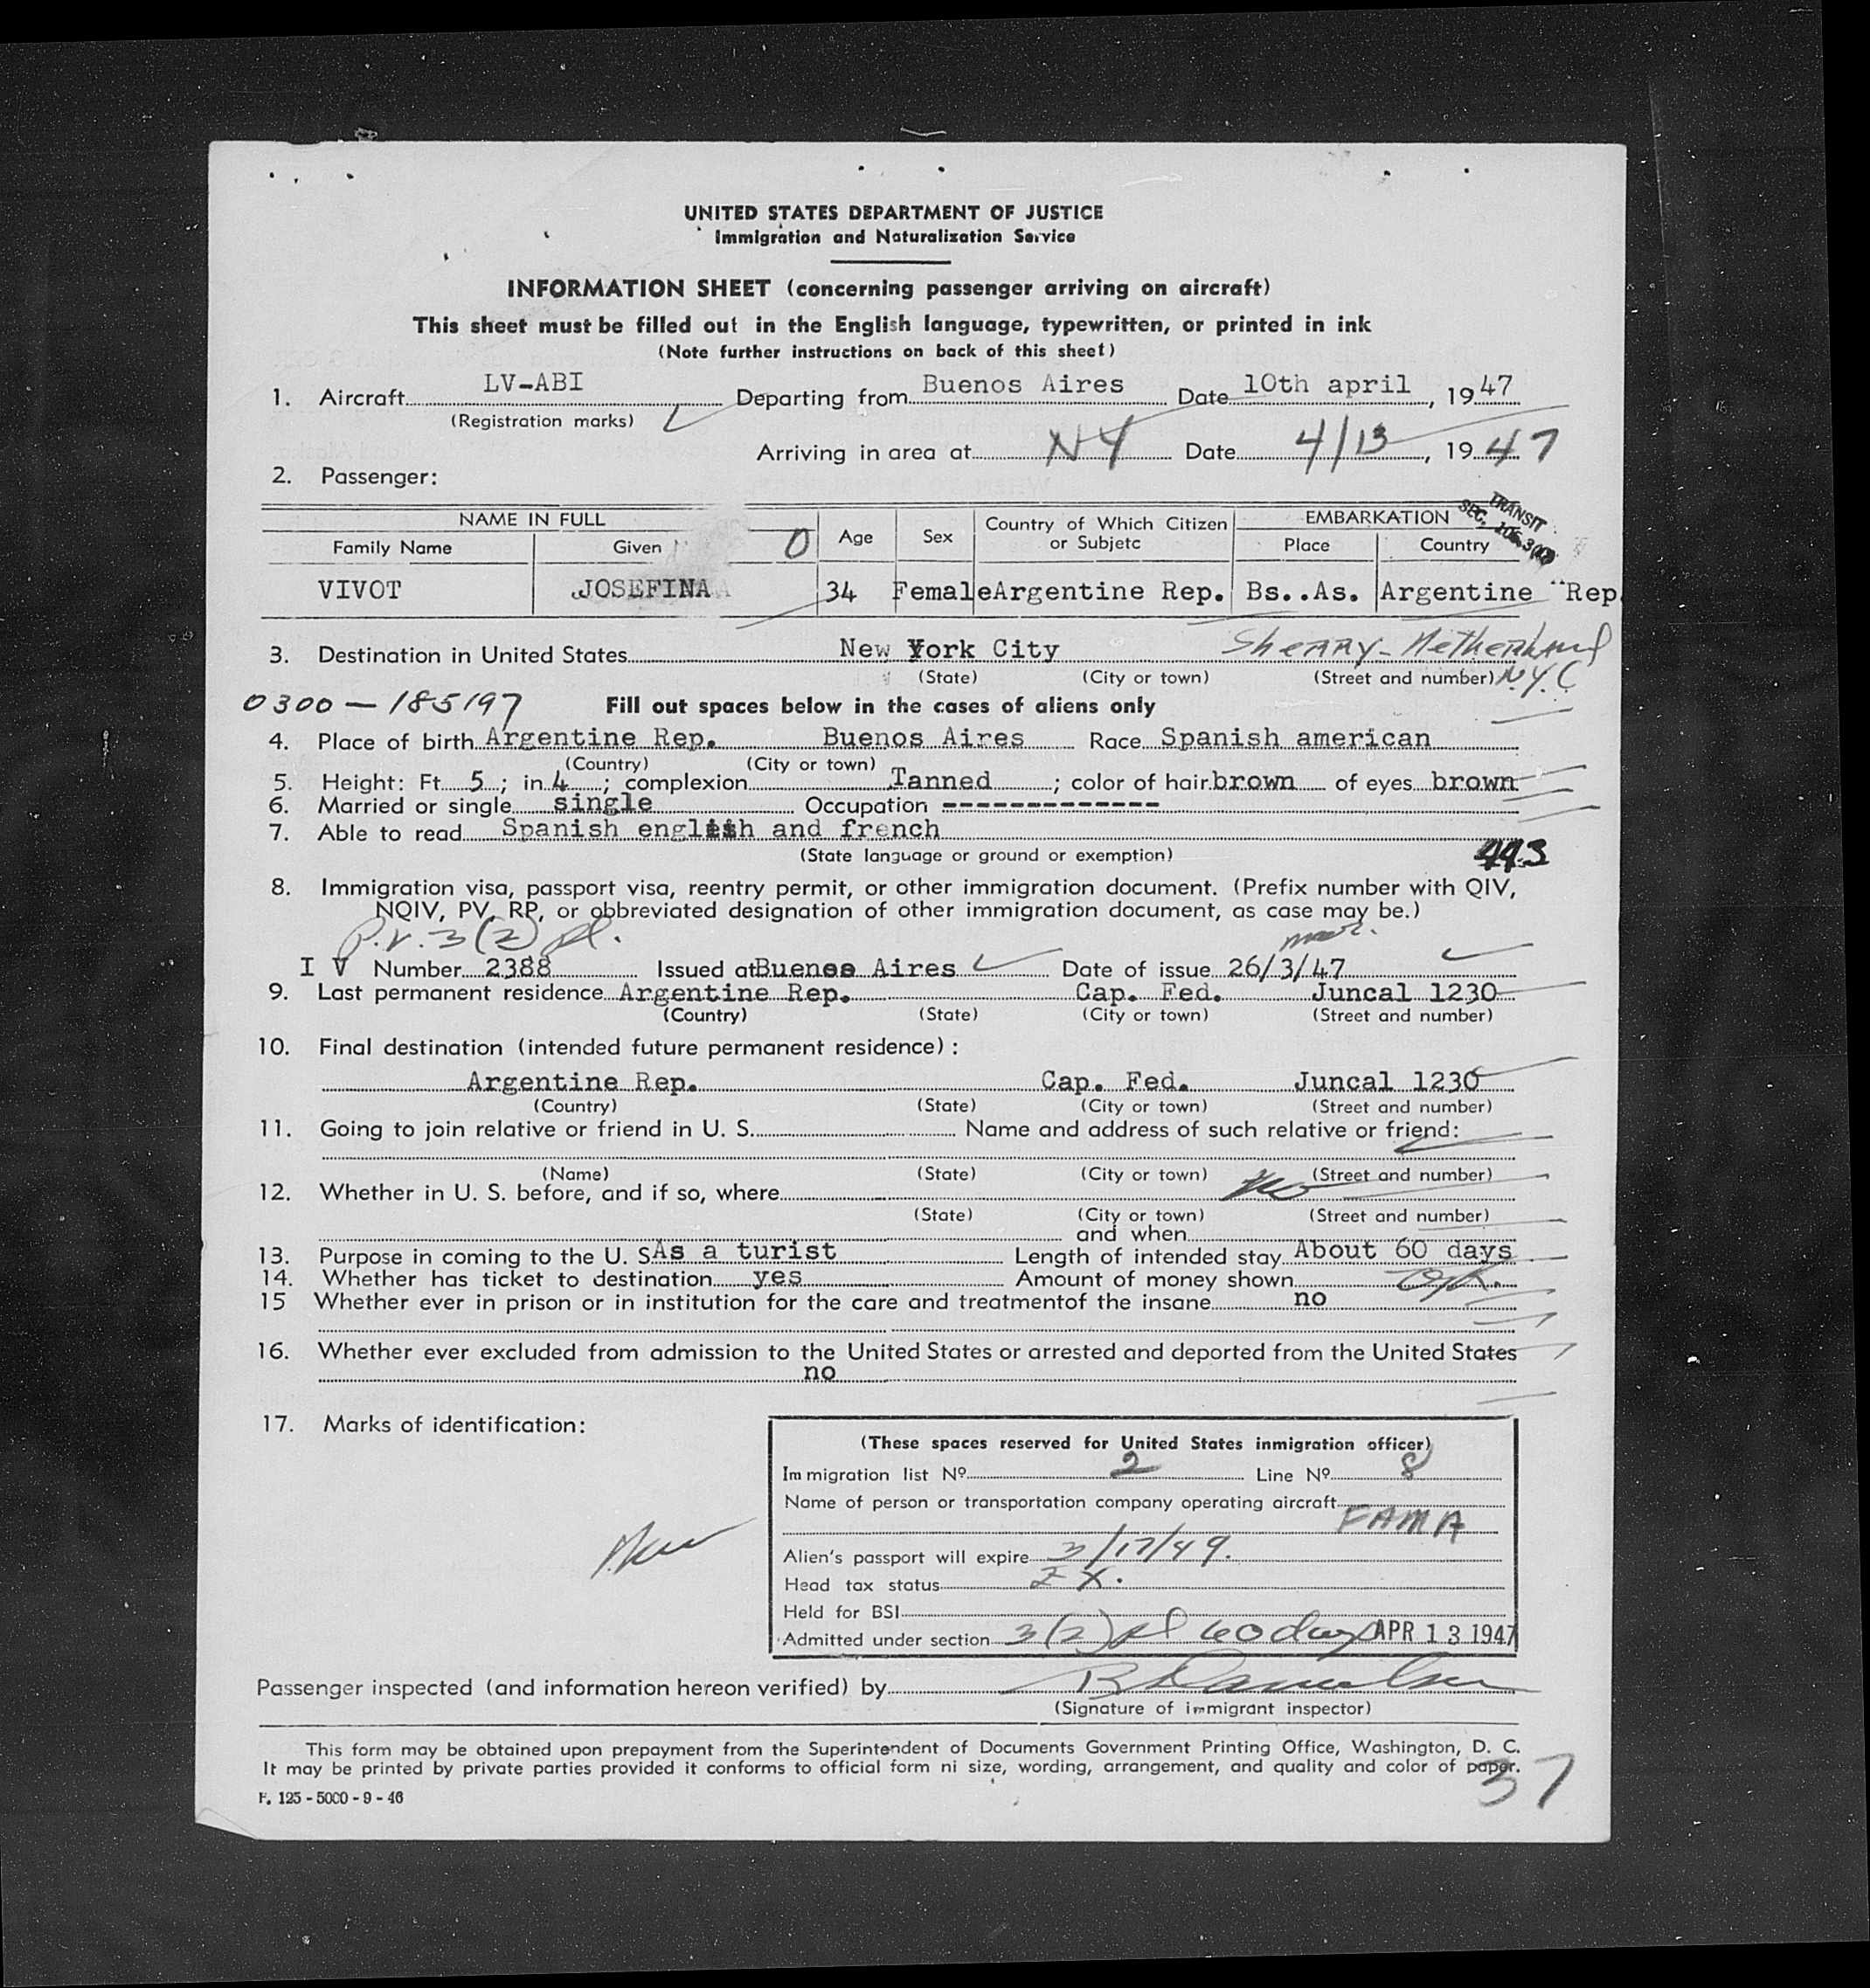 UNITED STATES DEPARTMENT OF JUSTICE
Immigration and Naturalization Service
INFORMATION SHEET (concerning passenger arriving on aircraft)
This sheet must be filled out in the English language, typewritten, or printed in ink
(Note further instructions on back of this sheet)
1. Aircraft LV-ABI Departing from Buenos Aires Date 10th april, 1947
(Registration marks)
Arriving in area at NY Date 4/13, 1947
2. Passenger:
TRANSIT
NAME IN FULL Age Sex Country of Which Citizen or Subjetc EMBARKATION
Family Name Given O Place Country
VIVOT JOSEFINA 34 Female Argentine Rep. Bs..As. Argentine Rep.
3. Destination in United States New York City Sherry-Netherland
(State) (City or town) (Street and number) N.Y.C
0300-185197 Fill out spaces below in the cases of aliens only
4. Place of birth Argentine Rep. Buenos Aires Race Spanish american
(Country) (City or town)
5. Height: Ft. 5; in 4; complexion Tanned; color of hair brown of eyes brown
6. Married or single single Occupation -------------
7. Able to read Spanish english and french
(State language or ground or exemption) 443
8. Immigration visa, passport visa, reentry permit, or other immigration document. (Prefix number with QIV,
NQIV, PV, RP, or obbreviated designation of other immigration document, as case may be.)
P.V. 3(2) pl.
I V Number 2388 Issued at Buenos Aires Date of issue 26/3/47
9. Last permanent residence Argentine Rep. Cap. Fed. Juncal 1230
(Country) (State) (City or town) (Street and number)
10. Final destination (intended future permanent residence):
Argentine Rep. Cap. Fed. Juncal 1230
(Country) (State) (City or town) (Street and number)
11. Going to join relative or friend in U. S. Name and address of such relative or friend:
(Name) (State) (City or town) (Street and number)
12. Whether in U. S. before, and if so, where No
(State) (City or town) (Street and number)
and when
13. Purpose in coming to the U. S. As a turist Length of intended stay About 60 days
14. Whether has ticket to destination yes Amount of money shown O.K.
15 Whether ever in prison or in institution for the care and treatmentof the insane no
16. Whether ever excluded from admission to the United States or arrested and deported from the United States
no
17. Marks of identification:
(These spaces reserved for United States inmigration officer)
Immigration list Nº 2 Line Nº 8
Name of person or transportation company operating aircraft
FAMA
Alien's passport will expire 3/17/49.
Head tax status EX.
Held for BSI
Admitted under section 3(2) pl 60 days APR 13 1947
Passenger inspected (and information hereon verified) by
(Signature of immigrant inspector)
This form may be obtained upon prepayment from the Superintendent of Documents Government Printing Office, Washington, D. C.
It may be printed by private parties provided it conforms to official form ni size, wording, arrangement, and quality and color of paper.
37
F. 125 - 5000 - 9 - 46